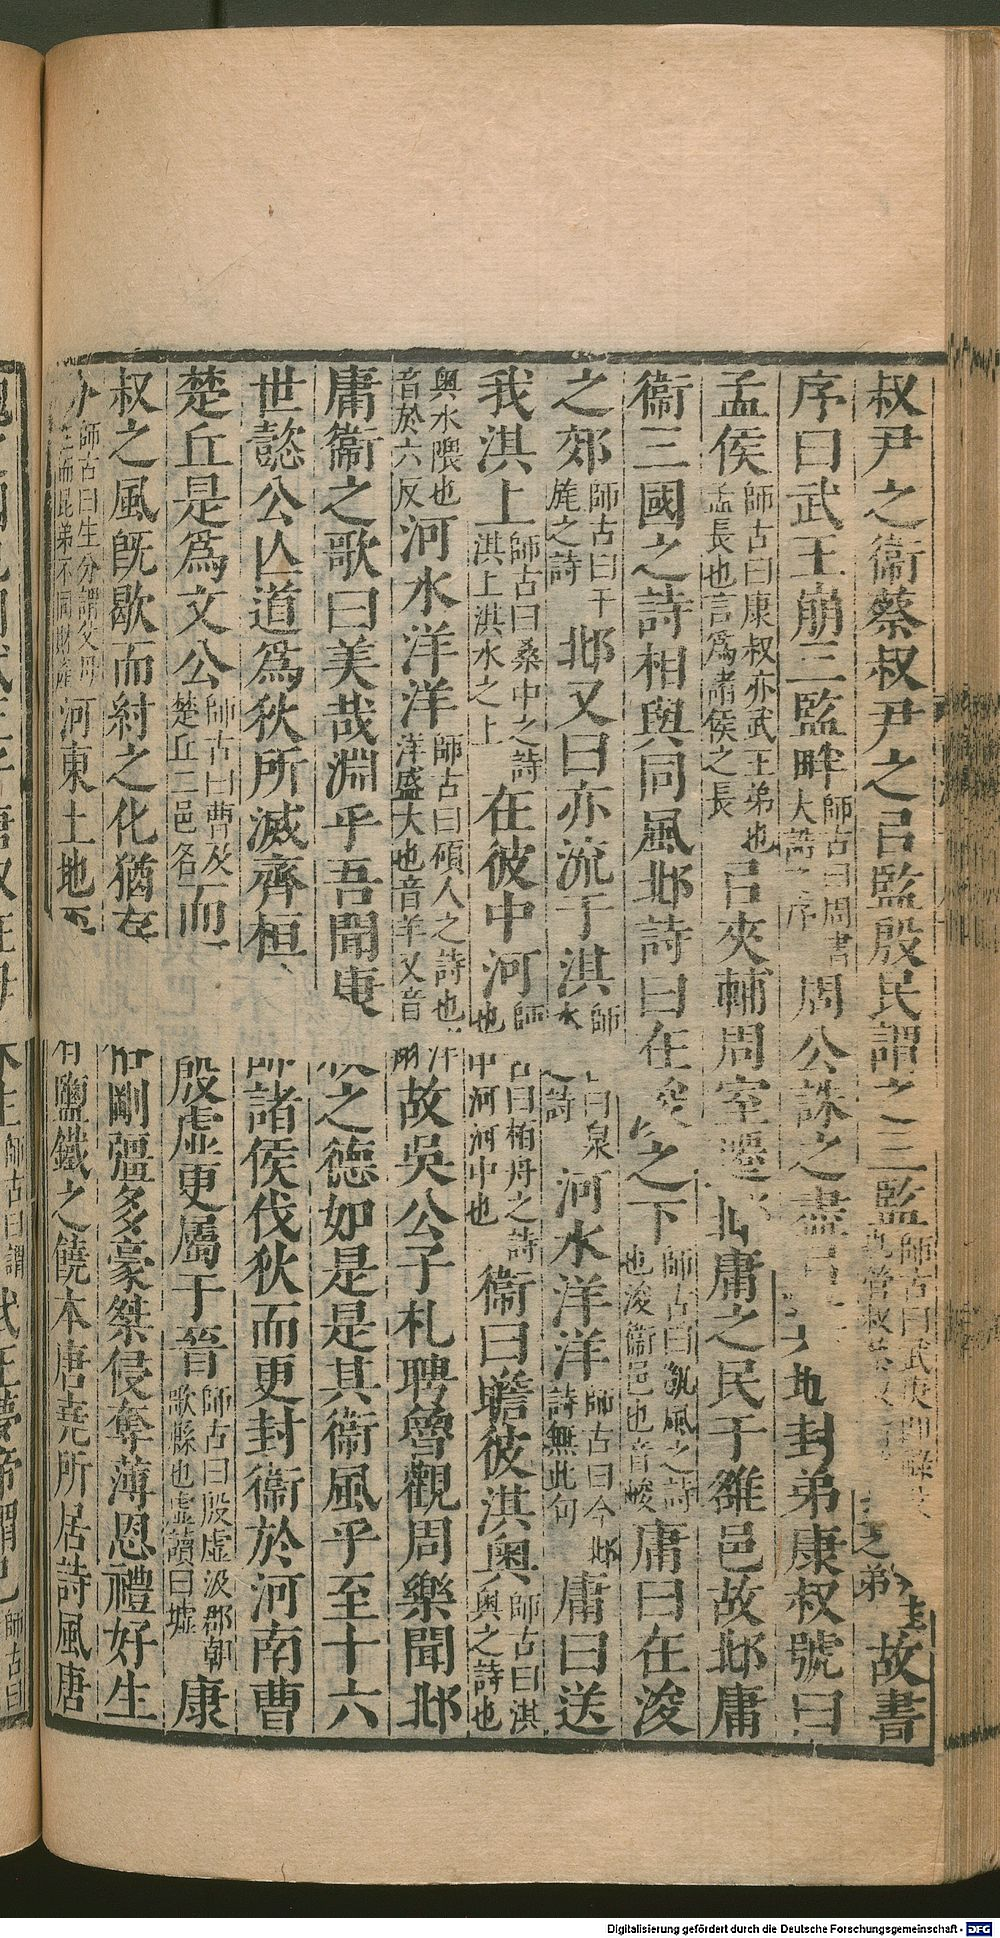 叔尹之衞蔡叔尹之㠯監殷民謂之三監師古曰武庚即祿父也管叔蔡叔之弟故書
序曰武王崩三監畔師古曰周書大誥之序周公誅之盡地封弟康叔號曰
孟侯師古曰康叔亦武王弟也孟長也言爲諸侯之長㠯夾輔周室遷邶庸之民于雒邑故邶庸
衞三國之詩相與同風邶詩曰在浚之下師古曰凱風之詩也浚衞邑也音峻庸曰在浚
之郊師古曰干旄之詩邶又曰亦流于淇師古曰泉水之詩河水洋洋師古曰今邶詩無此句庸曰送
我淇上師古曰桑中之詩淇上淇水之上在彼中河師古曰柏舟之詩也中河河中也衞曰瞻彼淇奧師古曰淇奧之詩也
奧水隈也音於六反河水洋洋師古曰碩人之詩也洋洋盛大也音羊又音翔故吳公子札聘魯觀周樂聞邶
庸衞之歌曰美哉淵乎吾聞康叔之德如是是其衞風乎至十六
世懿公亾道爲狄所滅齊桓帥諸侯伐狄而更封衞於河南曹
楚丘是爲文公師古曰曹及楚丘二邑名而殷虛更屬于晉師古曰殷虛汲郡朝歌縣也虛讀曰墟康
叔之風旣歇而紂之化猶存故俗剛彊多豪桀侵奪薄恩禮好生
分師古曰生分謂父母在而昆弟不同財產河東土地平易有鹽鐵之饒本唐堯所居詩風唐
Digitalisierung gefördert durch die Deutsche Forschungsgemeinschaft - DFG